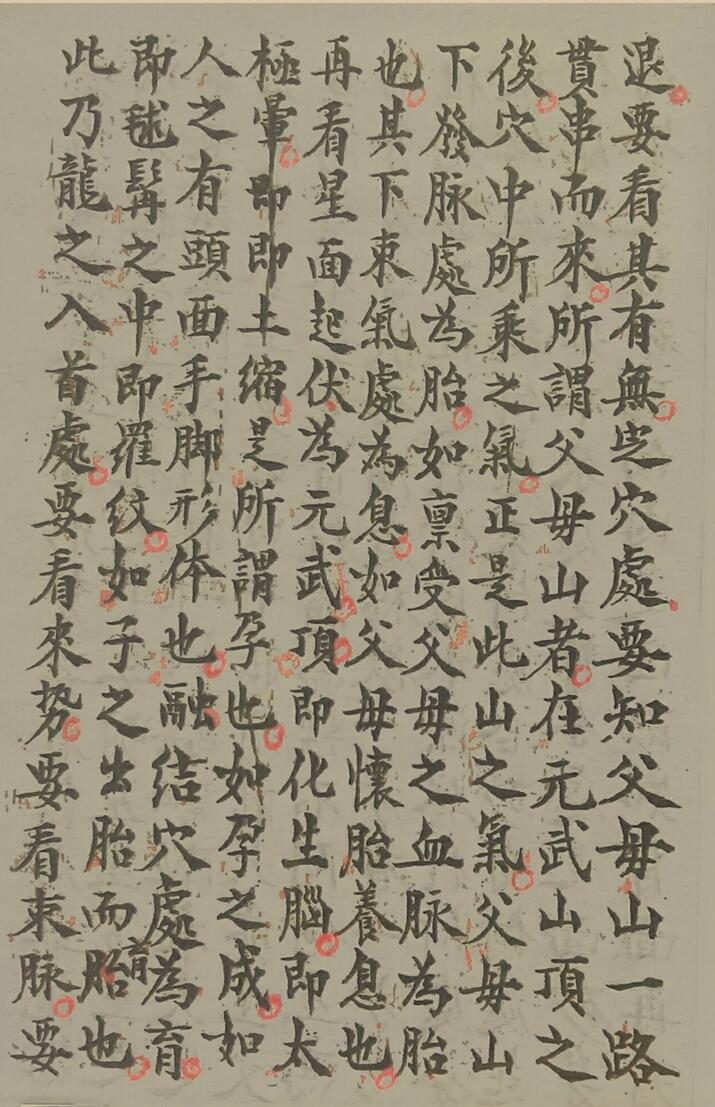 退要看其有無定穴處要知父母山一路
貫串而來所謂父母山者在元武山頂之
後穴中所乘之氣正是此山之氣父母山
下發脉處為胎如禀受父母之血脉為胎
也其下束氣處為息如父母懷胎養息也
再看星面起伏為元武頂即化生腦即太
極暈即即土縮是所謂孕也如孕之成如
人之有頭面手脚形体也融結穴處為育
即毬髯之中即羅紋如子之出胎而胎育也
此乃龍之入首處要看來势要看束脉要